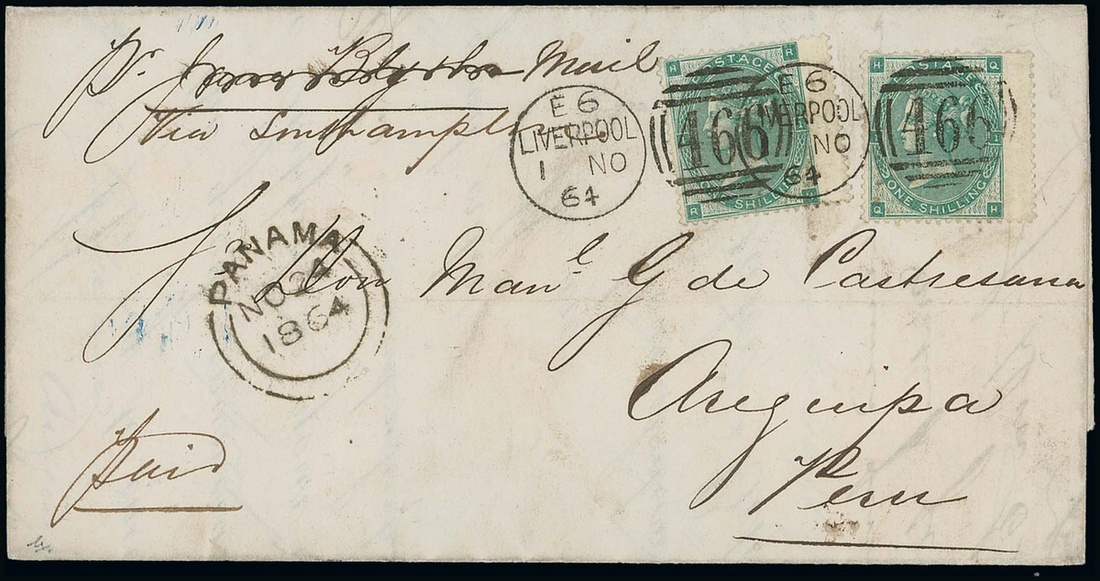 pr Mail
Via Southampton
E6
LIVERPOOL
1 NO
64
466
H R
POSTAGE
ONE SHILLING
R H
E6
LIVERPOOL
NO
64
466
H Q
POSTAGE
ONE SHILLING
Q H
PANAMA
NO 24
1864
S Don Manl G de Castresana
Arequipa
Peru
Paid